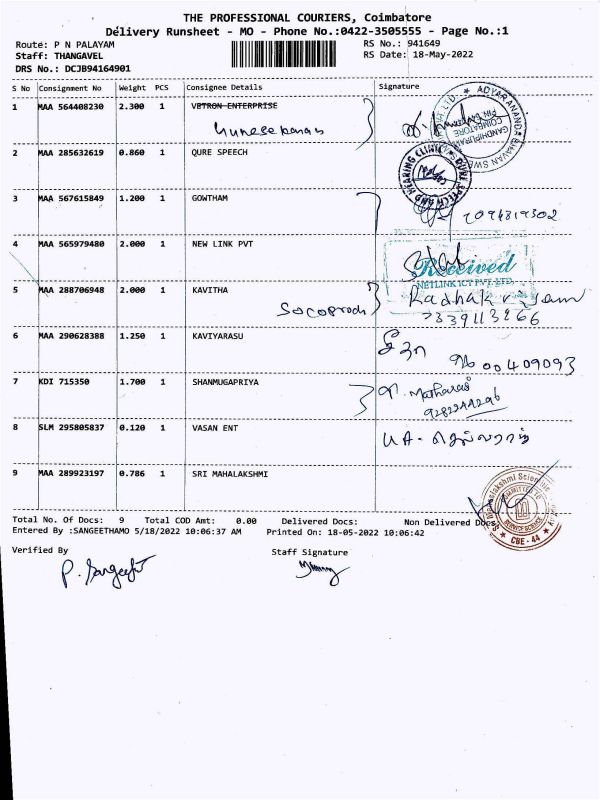 THE PROFESSIONAL COURIERS, Coimbatore
Delivery Runsheet - MO - Phone No.:0422-3505555 - Page No.:1
Route: P N PALAYAM
RS No.: 941649
Staff: THANGAVEL
RS Date: 18-May-2022
DRS No.: DCJB94164901
S No Consignment No Weight PCS Consignee Details Signature
1 MAA 564408230 2.300 1 VETRON ENTERPRISE
ADYAR ANANDA BHAVAN SWE
GANDHIPURAM
COIMBATORE
2 MAA 285632619 0.860 1 QURE SPEECH
QURE SPEECH AND HEARING CLINIC
3 MAA 567615849 1.200 1 GOWTHAM
4 MAA 565979480 2.000 1 NEW LINK PVT
Received
NETLINK ICT PVT. LTD.
5 MAA 288706948 2.000 1 KAVITHA
6 MAA 290628388 1.250 1 KAVIYARASU
00409093
7 KDI 715350 1.700 1 SHANMUGAPRIYA
8 SLM 295805837 0.120 1 VASAN ENT
9 MAA 289923197 0.786 1 SRI MAHALAKSHMI
CBE - 44
Total No. Of Docs: 9 Total COD Amt: 0.00 Delivered Docs: Non Delivered Docs
Entered By :SANGEETHAMO 5/18/2022 10:06:37 AM Printed On: 18-05-2022 10:06:42
Verified By
Staff Signature
P. Sangeeth